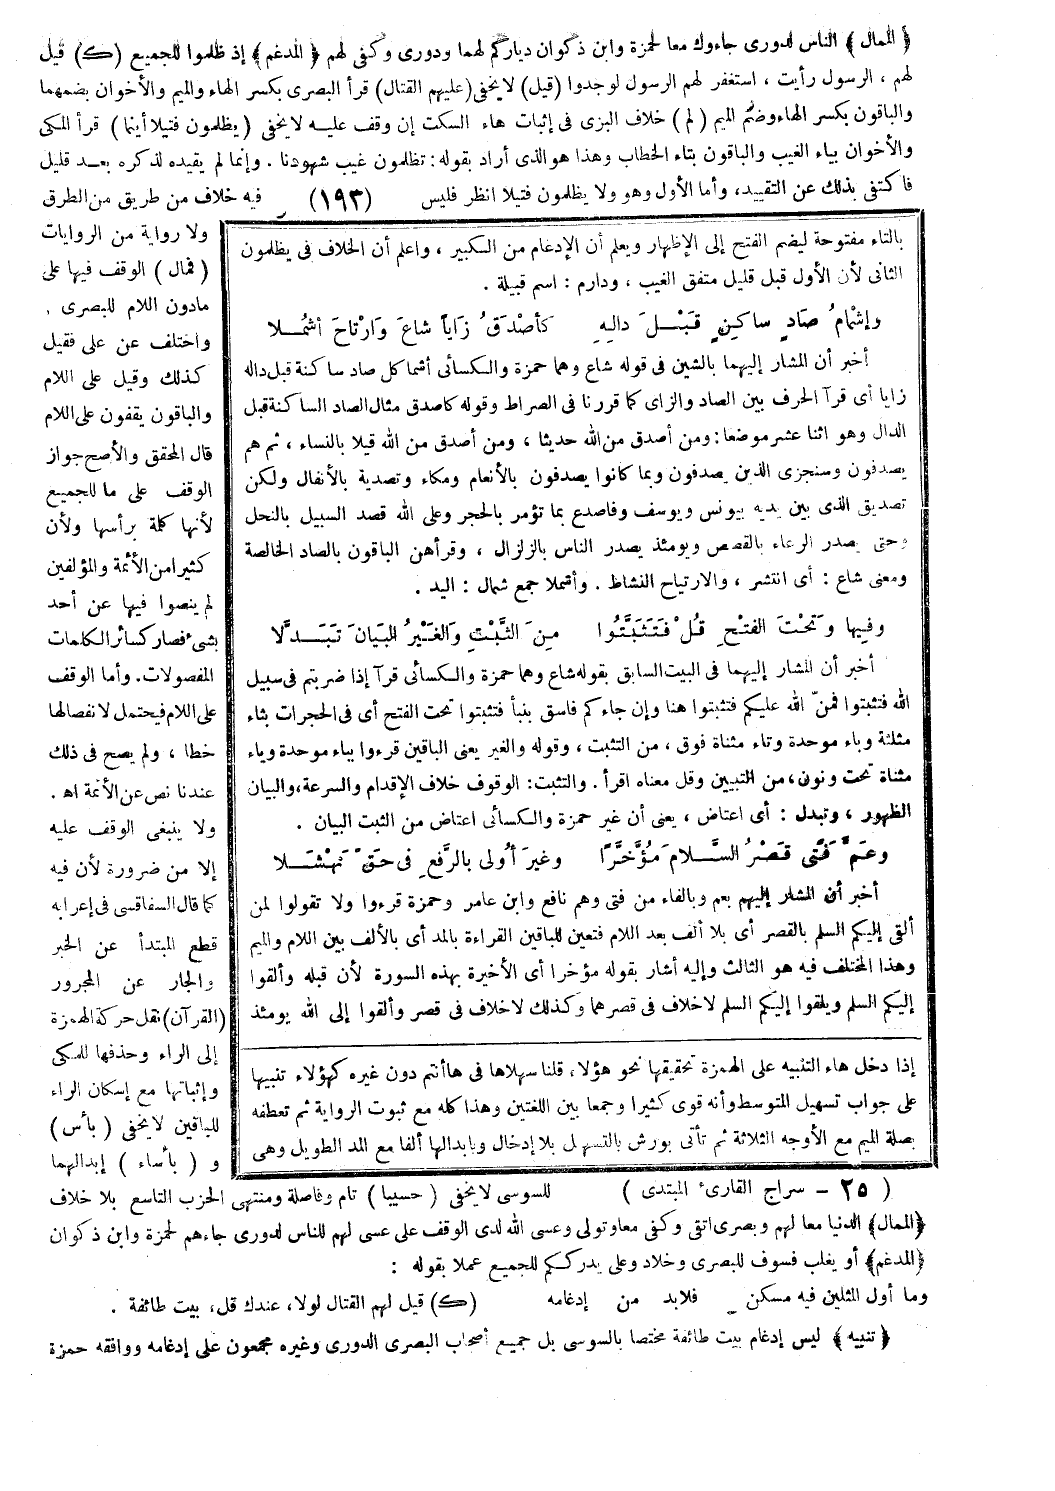 ﴿ الممال ﴾ الناس لدورى جاءوك معا لحمزة وابن ذكوان دياركم لهما ودورى وكفى لهم ﴿ المدغم ﴾ إذ ظلموا للجميع (ك) قيل
لهم ، الرسول رأيت ، استغفر لهم الرسول لوجدوا (قيل) لا يخفى (عليهم القتال) قرأ البصرى بكسر الهاء والميم والأخوان بضمهما
والباقون بكسر الهاء وضم الميم ( لم ) خلاف البزى فى إثبات هاء السكت إن وقف عليه لا يخفى ( يظلمون فتيلا أينما ) قرأ المكى
والأخوان بياء الغيب والباقون بتاء الخطاب وهذا هو الذى أراد بقوله : تظلمون غيب شهودنا . وإنما لم يقيده لذكره بعد قليل
فاكتفى بذلك عن التقييد، وأما الأول وهو ولا يظلمون فتيلا انظر فليس (١٩٣) فيه خلاف من طريق من الطرق
ولا رواية من الروايات
( فمال ) الوقف فيها على
مادون اللام للبصرى .
واختلف عن على فقيل
كذلك وقيل على اللام
والباقون يقفون على اللام
قال المحقق والأصح جواز
الوقف على ما للجميع
لأنها كلمة برأسها ولأن
كثيرا من الأئمة والمؤلفين
لم ينصوا فيها عن أحد
بشىء فصار كسائر الكلمات
المفصولات. وأما الوقف
على اللام فيحتمل لانفصالها
خطا ، ولم يصح فى ذلك
عندنا نص عن الأئمة اه .
ولا ينبغى الوقف عليه
إلا من ضرورة لأن فيه
كما قال السفاقسى فى إعرابه
قطع المبتدأ عن الخبر
والجار عن المجرور
(القرآن) نقل حركة الهمزة
إلى الراء وحذفها للمكى
وإثباتها مع إسكان الراء
للباقين لا يخفى ( بأس )
و ( بأساء ) إبدالهما
بالتاء مفتوحة ليضم الفتح إلى الإظهار ويعلم أن الإدغام من الكبير ، واعلم أن الخلاف فى يظلمون
الثانى لأن الأول قبل قليل متفق الغيب ، ودارم : اسم قبيلة .
وإشمامُ صادٍ ساكنٍ قبْلَ دالهِ كأصْدَقُ زَايًا شاعَ وَارْتاحَ أشمُلا
أخبر أن المشار إليهما بالشين فى قوله شاع وهما حمزة والكسائى أشما كل صاد ساكنة قبل داله
زايا أى قرآ الحرف بين الصاد والزاى كما قررنا فى الصراط وقوله كاصدق مثال الصاد الساكنة قبل
الدال وهو اثنا عشر موضعا : ومن أصدق من الله حديثا ، ومن أصدق من الله قيلا بالنساء ، ثم هم
يصدفون وسنجزى الذين يصدفون وبما كانوا يصدفون بالأنعام ومكاء وتصدية بالأنفال ولكن
تصديق الذى بين يديه بيونس ويوسف وفاصدع بما تؤمر بالحجر وعلى الله قصد السبيل بالنحل
وحتى يصدر الرعاء بالقصص ويومئذ يصدر الناس بالزلزال ، وقرأهن الباقون بالصاد الخالصة
ومعنى شاع : أى انتشر ، والارتياح النشاط . وأشملا جمع شمال : اليد .
وفيها وتحْتَ الفتْحِ قُلْ فتَثَبَّتُوا مِنَ الثَّبْتِ وَالغَيْرُ البَيانَ تَبَدَّلا
أخبر أن المشار إليهما فى البيت السابق بقوله شاع وهما حمزة والكسائى قرآ إذا ضربتم فى سبيل
الله فتثبتوا فمنّ الله عليكم فتثبتوا هنا وإن جاءكم فاسق بنبأ فتثبتوا تحت الفتح أى فى الحجرات بثاء
مثلثة وباء موحدة وتاء مثناة فوق ، من التثبت ، وقوله والغير يعنى الباقين قرءوا بباء موحدة وياء
مثناة تحت ونون، من التبيين وقل معناه اقرأ . والتثبت: الوقوف خلاف الإقدام والسرعة، والبيان
الظهور ، وتبدل : أى اعتاض ، يعنى أن غير حمزة والكسائى اعتاض من الثبت البيان .
وعَمَّ فَتًى قصْرُ السَّلامَ مُؤَخَّرًا وغيرَ أُولى بالرَّفعِ فى حَقّ نَهْشَلا
أخبر أن المشار إليهم بعم وبالفاء من فتى وهم نافع وابن عامر وحمزة قرءوا ولا تقولوا لمن
ألقى إليكم السلم بالقصر أى بلا ألف بعد اللام فتعين للباقين القراءة بالمد أى بالألف بين اللام والميم
وهذا المختلف فيه هو الثالث وإليه أشار بقوله مؤخرا أى الأخيرة بهذه السورة لأن قبله وألقوا
إليكم السلم ويلقوا إليكم السلم لاخلاف فى قصرهما وكذلك لاخلاف فى قصر وألقوا إلى الله يومئذ
إذا دخل هاء التنبيه على الهمزة تحقيقها نحو هؤلاء، قلنا سهلاها فى هاأنتم دون غيره كهؤلاء تنبيها
على جواب تسهيل المتوسط وأنه قوى كثيرا وجمعا بين اللغتين وهذا كله مع ثبوت الرواية ثم تعطفه
بصلة الميم مع الأوجه الثلاثة ثم تأتى بورش بالتسهيل بلا إدخال وبإبدالها ألفا مع المد الطويل وهى
( ٢٥ – سراج القارىء المبتدى ) للسوسى لا يخفى ( حسيبا ) تام وفاصلة ومنتهى الحزب التاسع بلا خلاف
﴿الممال﴾ الدنيا معا لهم وبصرى اتقى وكفى معا وتولى وعسى الله لدى الوقف على عسى لهم للناس لدورى جاءهم لحمزة وابن ذكوان
﴿المدغم﴾ أو يغلب فسوف للبصرى وخلاد وعلى يدرككم للجميع عملا بقوله :
وما أول المثلين فيه مسكن فلابد من إدغامه (ك) قيل لهم القتال لولا، عندك قل، بيت طائفة .
﴿ تنبيه ﴾ ليس إدغام بيت طائفة مختصا بالسوسى بل جميع أصحاب البصرى الدورى وغيره مجمعون على إدغامه ووافقه حمزة